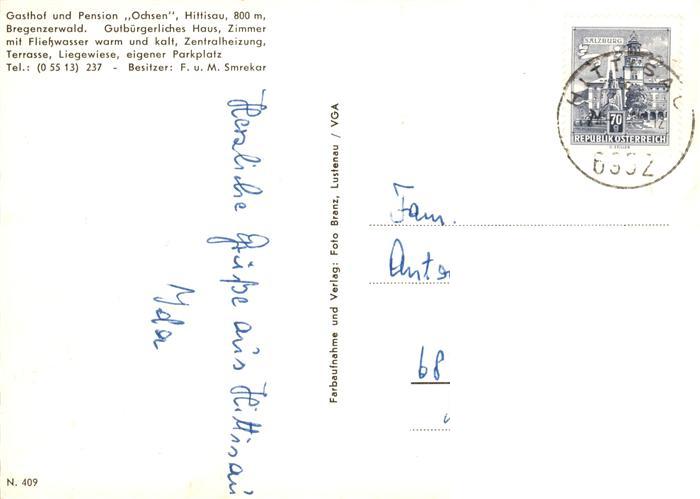 Gasthof und Pension „Ochsen", Hittisau, 800 m,
Bregenzerwald. Gutbürgerliches Haus, Zimmer
mit Fließwasser warm und kalt, Zentralheizung,
Terrasse, Liegewiese, eigener Parkplatz
Tel.: (0 55 13) 237 - Besitzer: F. u. M. Smrekar
Herzliche Grüße aus Hittisau
Ida
Farbaufnahme und Verlag: Foto Branz, Lustenau / VGA
SALZBURG
70
REPUBLIK ÖSTERREICH
HITTISAU
6952
Fam.
68
N. 409